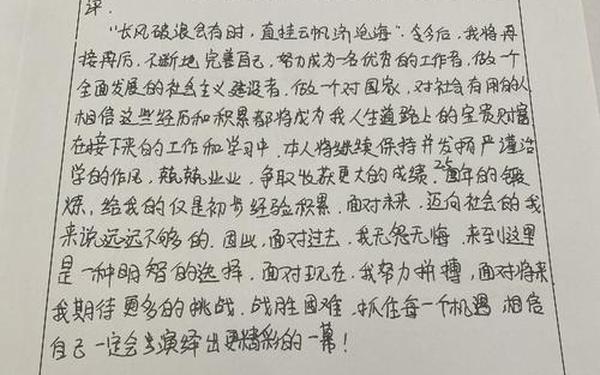 评.
"长风破浪会有时，直挂云帆济沧海". 今后，我将再
接再厉，不断地完善自己，努力成为一名优秀的工作者，做一个
全面发展的社会主义建设者，做一个对国家，对社会有用的人
相信这些经历和积累都将成为我人生道路上的宝贵财富
在接下来的工作和学习中，本人将继续保持并发扬严谨治
学的作风，兢兢业业，争取收获更大的成绩. 2.5年的锻
炼，给我的仅是初步经验积累，面对未来，迈向社会的我
来说远远不够的. 因此，面对过去，我无怨无悔，来到这里
是一种明智的选择. 面对现在，我努力拼搏，面对将来
我期待更多的挑战. 战胜困难，抓住每一个机遇，相信
自己一定会演绎出更精彩的一幕！